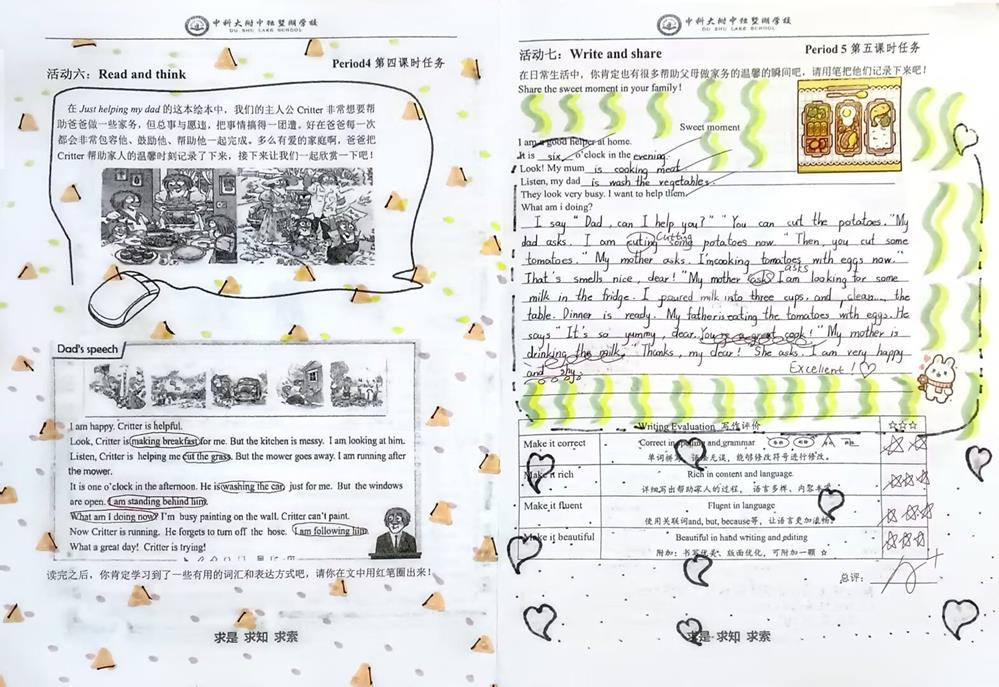 中科大附中独墅湖学校
DU SHU LAKE SCHOOL
Period4 第四课时任务
活动六：Read and think
在 Just helping my dad 的这本绘本中，我们的主人公 Critter 非常想要帮
助爸爸做一些家务，但总事与愿违，把事情搞得一团遭。好在爸爸每一次
都会非常包容他、鼓励他、帮助他一起完成。多么有爱的家庭啊，爸爸把
Critter 帮助家人的温馨时刻记录了下来，接下来让我们一起欣赏一下吧！
Dad's speech
I am happy. Critter is helpful.
Look, Critter is making breakfast for me. But the kitchen is messy. I am looking at him.
Listen, Critter is helping me cut the grass. But the mower goes away. I am running after
the mower.
It is one o'clock in the afternoon. He is washing the car, just for me. But the windows
are open. I am standing behind him.
What am I doing now? I'm busy painting on the wall. Critter can't paint.
Now Critter is running. He forgets to turn off the hose. I am following him.
What a great day! Critter is trying!
读完之后，你肯定学习到了一些有用的词汇和表达方式吧，请你在文中用红笔圈出来！
求是 求知 求索
中科大附中独墅湖学校
DU SHU LAKE SCHOOL
Period 5 第五课时任务
活动七：Write and share
在日常生活中，你肯定也有很多帮助父母做家务的温馨的瞬间吧，请用笔把他们记录下来吧！
Share the sweet moment in your family!
Sweet moment
I am a good helper at home.
It is six o'clock in the evening.
Look! My mum is cooking meat
Listen, my dad is wash the vegetables.
They look very busy. I want to help them.
What am i doing?
I say “Dad, can I help you?” “You can cut the potatoes.” My
dad asks. I am cuting cutting some potatoes now. “Then, you cut some
tomatoes.” My mother asks. I'm cooking tomatoes with eggs now.”
That's smells nice, dear! “My mother ask asks I am looking for some
milk in the fridge. I poured milk into three cups. and clean the
table. Dinner is ready. My father is eating the tomatoes with eggs. He
says “It's so yummy, dear. You is a great cook!” My mother is
drinking the milk. “Thanks, my dear! She asks. I am very happy
and shy.
Excellent!♡
Writing Evaluation 写作评价 ☆☆☆
Make it correct Correct in and grammar
单词拼 无误，能够修改符号进行修改。
Make it rich Rich in content and language.
详细写出帮助家人的过程，语言多样，内容丰富
Make it fluent Fluent in language
使用关联词and, but, because等，让语言更加流畅
Make it beautiful Beautiful in hand writing and editing
附加：书写优美、版面优化，可附加一颗 ☆
总评：
求是 求知 求索